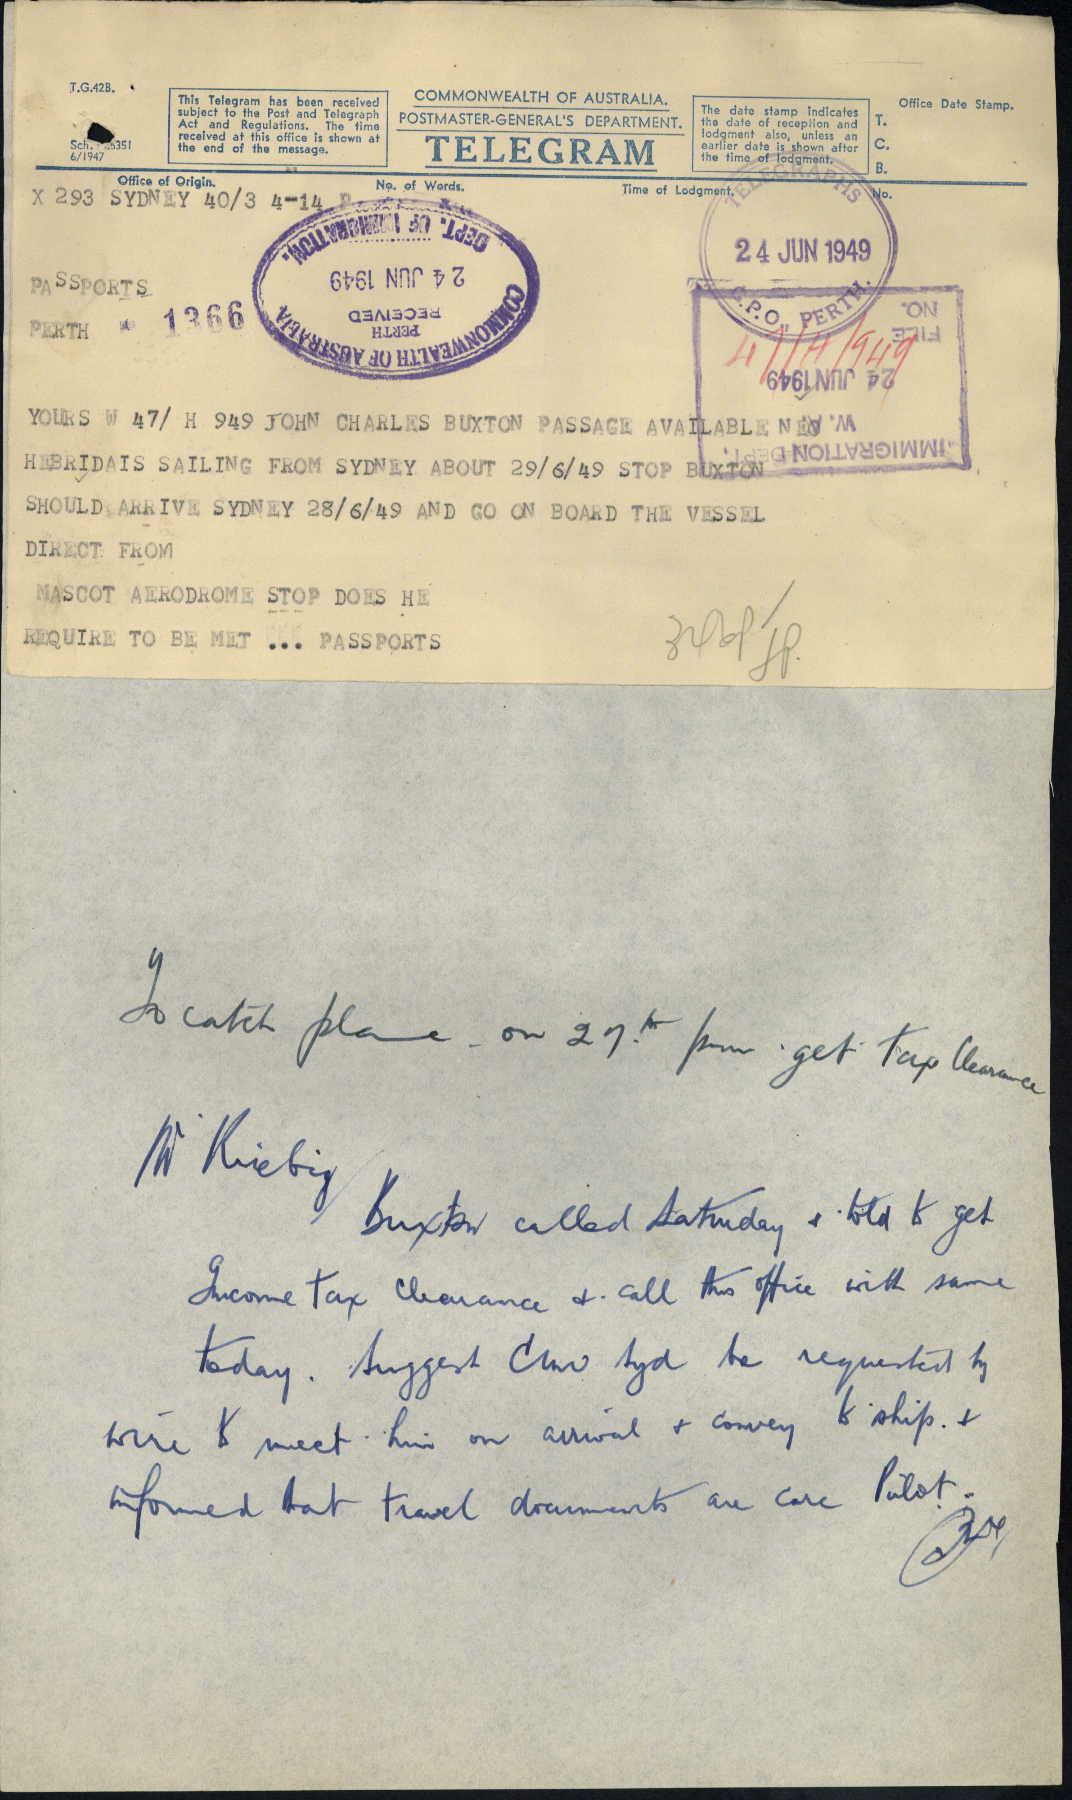 T.G.42B.
Sch. 6351
6/1947
This Telegram has been received
subject to the Post and Telegraph
Act and Regulations. The time
received at this office is shown at
the end of the message.
COMMONWEALTH OF AUSTRALIA.
POSTMASTER-GENERAL'S DEPARTMENT.
TELEGRAM
The date stamp indicates
the date of reception and
lodgment also, unless an
earlier date is shown after
the time of lodgment.
T.
C.
B.
Office Date Stamp.
Office of Origin.
No. of Words.
Time of Lodgment.
No.
X 293 SYDNEY 40/3 4-14 P
TELEGRAPHS
24 JUN 1949
G.P.O. PERTH.
DEPT. OF IMMIGRATION.
24 JUN 1949
RECEIVED
PERTH
COMMONWEALTH OF AUSTRALIA
PASSPORTS
PERTH
1366
IMMIGRATION DEPT.
W. A.
24 JUN 1949
FILE
NO.
47/H/949
YOURS W 47/ H 949 JOHN CHARLES BUXTON PASSAGE AVAILABLE NEO
HEBRIDAIS SAILING FROM SYDNEY ABOUT 29/6/49 STOP BUXTON
SHOULD ARRIVE SYDNEY 28/6/49 AND GO ON BOARD THE VESSEL
DIRECT FROM
MASCOT AERODROME STOP DOES HE
REQUIRE TO BE MET ... PASSPORTS
To catch plane - on 27th pm get tax Clearance
Mr Kriebig
Buxton called Saturday & told to get
Income tax clearance & call this office with same
today. Suggest Cmw Syd be requested by
wire to meet him on arrival & convey to ship. &
informed that travel documents are care Pilot.